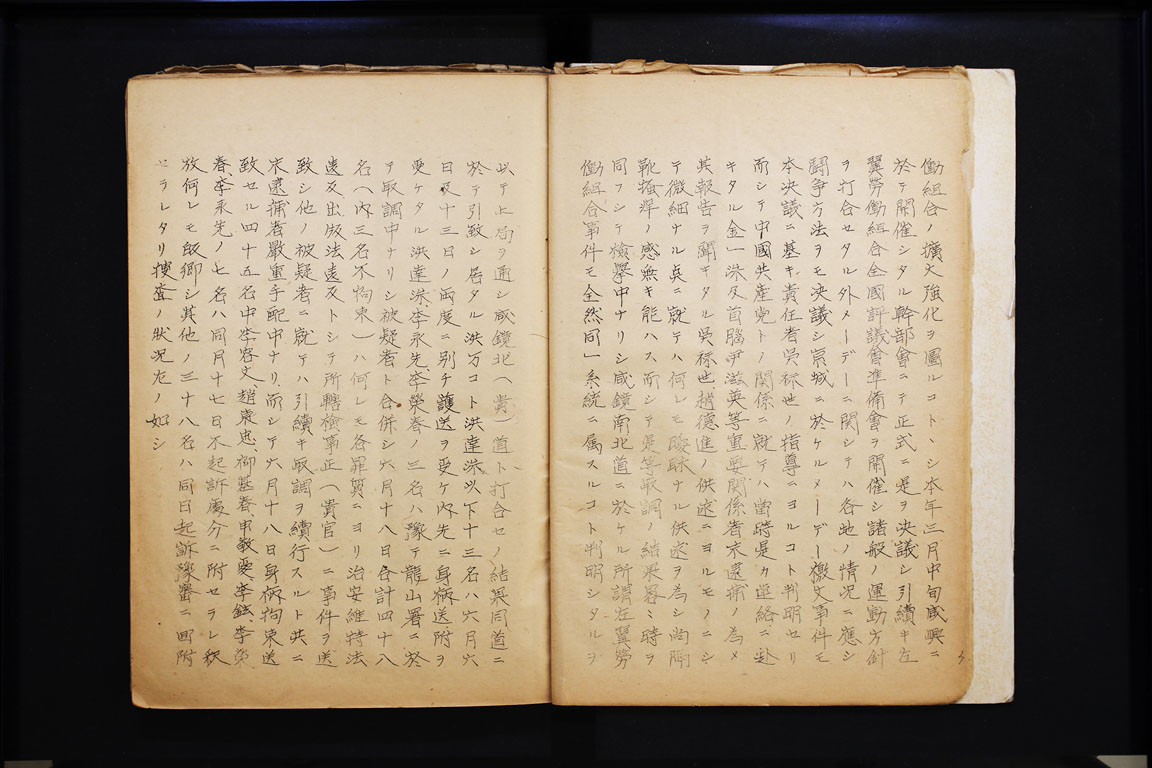 働組合ノ擴大強化ヲ圖ルコトヽシ本年三月中旬咸興ニ
於テ開催シタル幹部會ニテ正式ニ是ヲ決議シ引續キ左
翼勞働組合全國評議會準備會ヲ開催シ諸般ノ運動方針
ヲ打合セタル外メーデーニ関シテハ各地ノ情况ニ應シ
闘争方法ヲモ決議シ京城ニ於ケルメーデー檄文事件モ
本決議ニ基キ責任者吳祿世ノ指導ニヨルコト判明セリ
而シテ中國共産党トノ関係ニ就テハ當時是カ連絡ニ赴
キタル金一洙及首腦尹滋英等重要関係者未逮捕ノ為メ
其報告ヲ聞キタル吳祿世、趙德進ノ供述ニヨルモノニシ
テ微細ナル点ニ就テハ何レモ曖昧ナル供述ヲ為シ尚隔
靴搔痒ノ感無キ能ハス而シテ是等取調ノ結果畧ミ時ヲ
同フシテ檢擧中ナリシ咸鏡南北道ニ於ケル所謂左翼勞
働組合事件モ全然同一系統ニ属スルコト判明シタルヲ
以テ上局ヲ通シ咸鏡北(貴)道ト打合セノ結果同道ニ
於テ引致シ居タル洪万コト洪達洙以下十三名ハ六月六
日及十三日ノ両度ニ別チ護送ヲ受ケ内先ニ身柄送附ヲ
受ケタル洪達洙、李永先、李榮春ノ三名ハ豫テ龍山署ニ於
テ取調中ナリシ被疑者ト合併シ六月十八日合計四十八
名(内三名不拘束)ハ何レモ各罪質ニヨリ治安維持法
違反、出版法違反トシテ所轄検事正(貴官)ニ事件ヲ送
致シ他ノ被疑者ニ就テハ引續キ取調ヲ續行スルト共ニ
未逮捕者嚴重手配中ナリ、而シテ六月十八日身柄拘束送
致セル四十五名中李容文、趙東忠、御基春、申敬愛、李鉉、李榮
春、李永先ノ七名ハ同月十七日不起訴處分ニ附セラレ釈
放何レモ皈郷シ其他ノ三十八名ハ同日起訴豫審ニ回附
セラレタリ捜査ノ狀况左ノ如シ